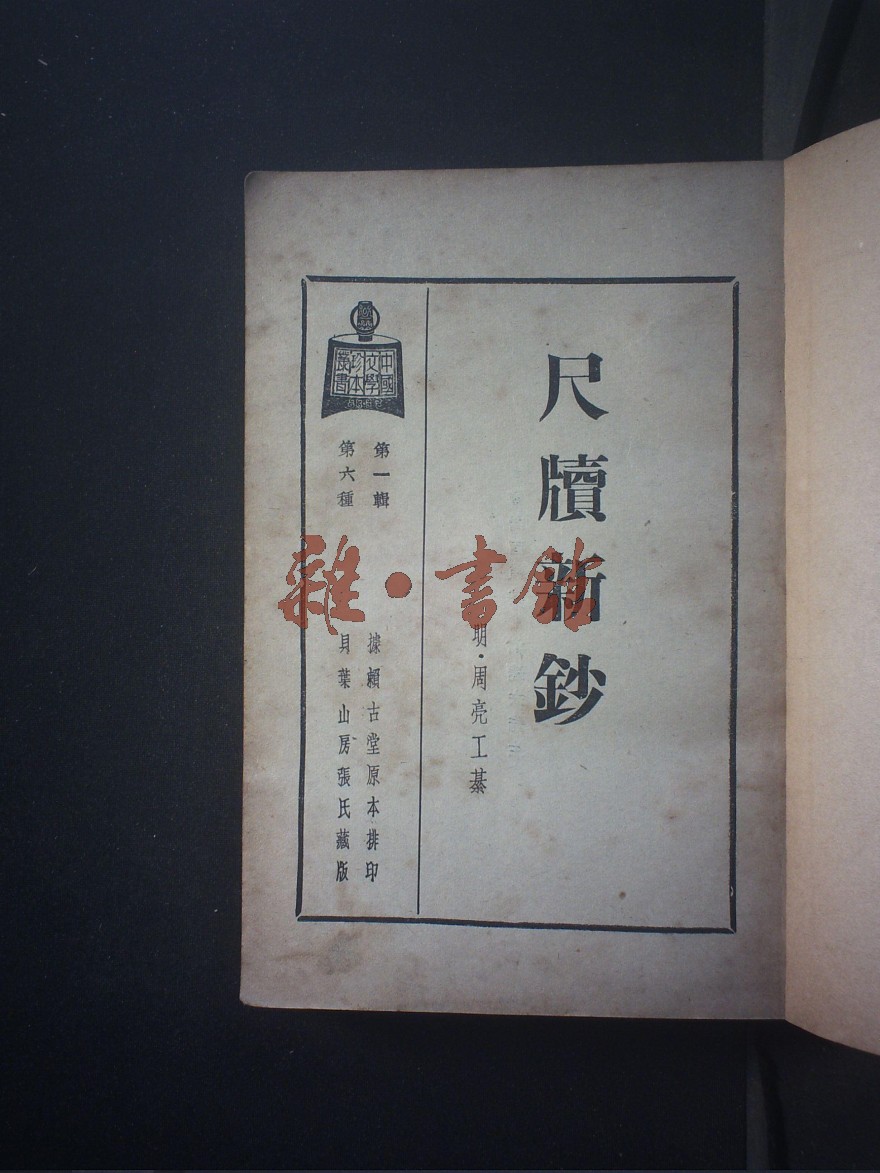 尺牘新鈔
明·周亮工纂
中國
文學
珍本
叢書
第一輯
第六種
據賴古堂原本排印
貝葉山房張氏藏版
雜·書館